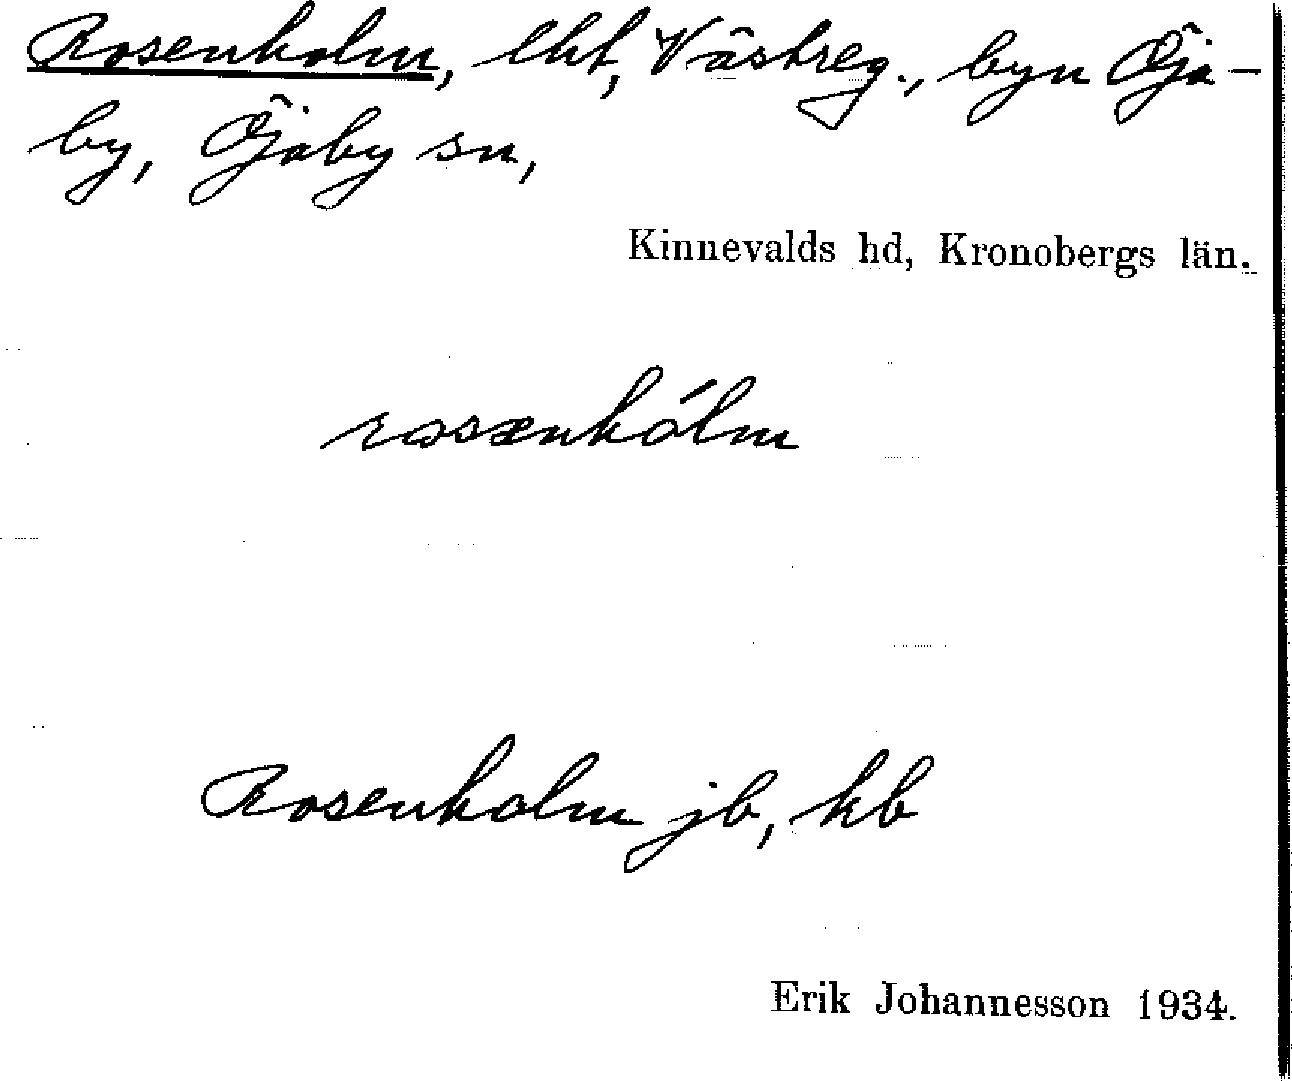 Rosenholm, lht, Västreg., byn Öja-
by, Öjaby sn,
Kinnevalds hd, Kronobergs län.
rosænhólm
Rosenholm jb, kb
Erik Johannesson 1934.